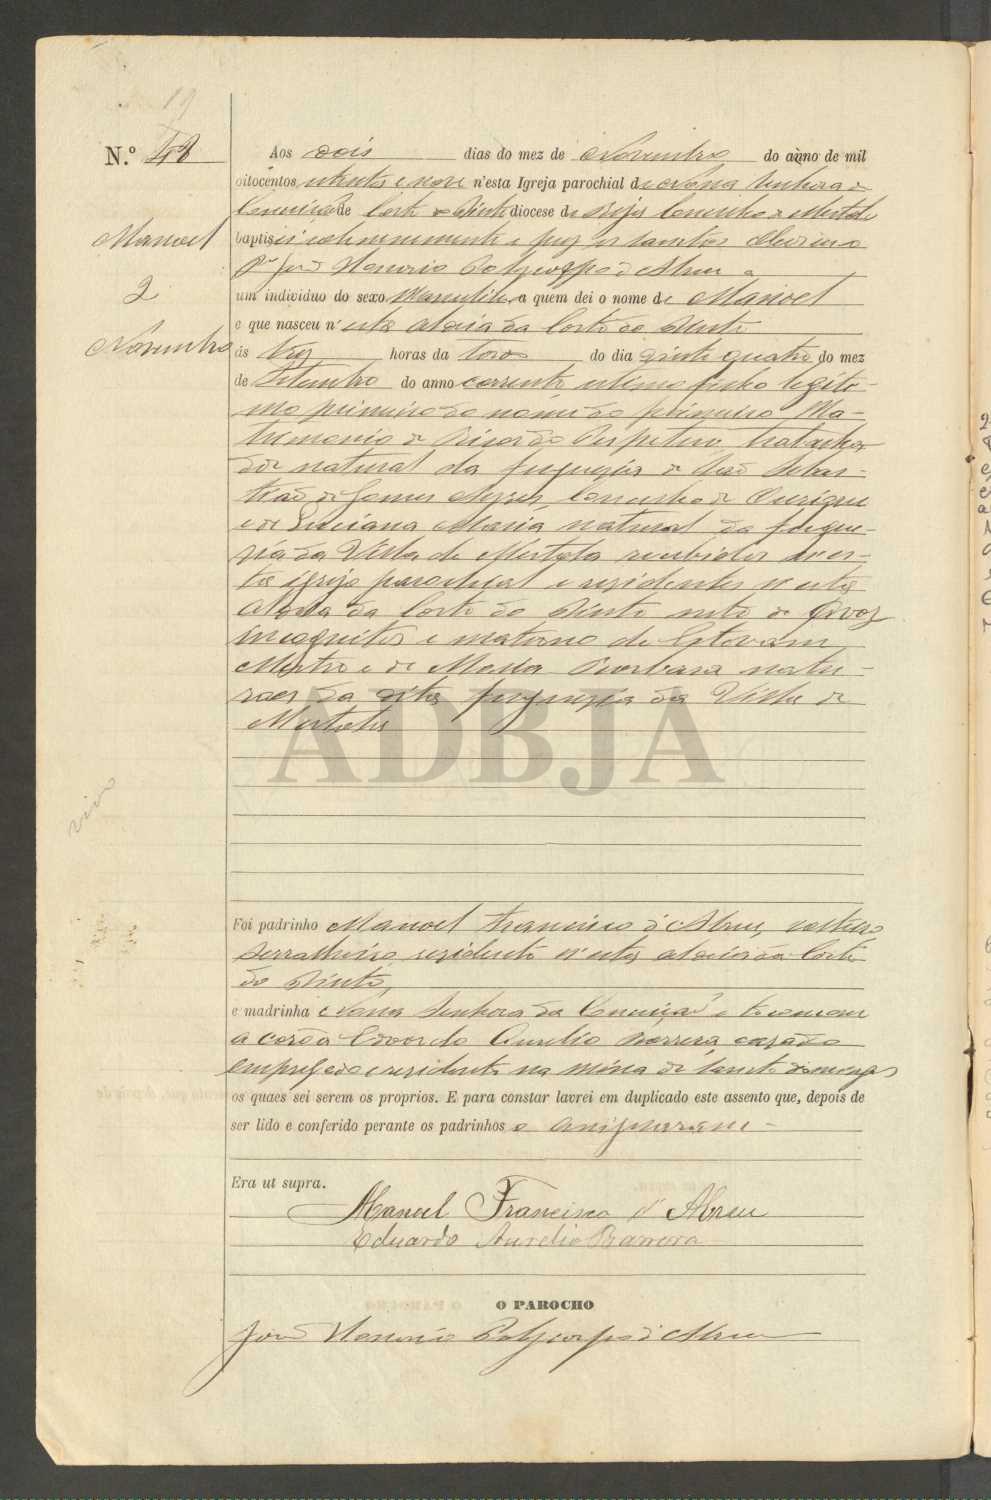 19
N.º 48
Manoel
2
Novembro
Aos dois dias do mez de Novembro do anno de mil
oitocentos oitenta e nove n'esta Igreja parochial de Nossa Senhora da
Conceição de Corte do Pinto diocese de Beja Concelho de Mertola
baptisei solemnemente e puz os Santos Oleos eu o
Pe. José Honorio Polycarpo d'Abreu a
um individuo do sexo Masculino a quem dei o nome de Manoel
e que nasceu n'esta Aldeia da Corte do Pinto
ás tres horas da do dia vinte quatro do mez
de Setembro do anno corrente ultimo filho legiti-
mo primeiro do nome do primeiro Ma-
trimonio de Ricardo Perpetuo trabalha-
dor natural da freguezia de São Sebas-
tião de Gomes Ayres, Concelho de Ourique
e de Luciana Maria, natural da fregue-
zia da Villa de Mertola recebidos n'es-
ta igreja parochial e residentes n'esta
Aldeia da Corte do Pinto neto de Avoz
incognitos e materno de Estevam
Mestre e de Maria Barbara natu-
raes da dita freguezia da Villa de
Mertola
ADBJA
vivo
Foi padrinho Manoel Francisco d'Abreu, solteiro
serralheiro, residente n'esta aldeia da Corte
do Pinto,
e madrinha Nossa Senhora da Conceição e tocou com
a corôa Eduardo Aurelio Barrera casado
empregado e residente na mina de Santo Domingos
os quaes sei serem os proprios. E para constar lavrei em duplicado este assento que, depois de
ser lido e conferido perante os padrinhos o assignaram -
Era ut supra.
Manuel Francisco d'Abreu
Eduardo Aurelio Barrera
O PAROCHO
José Honorio Polycarpo d'Abreu